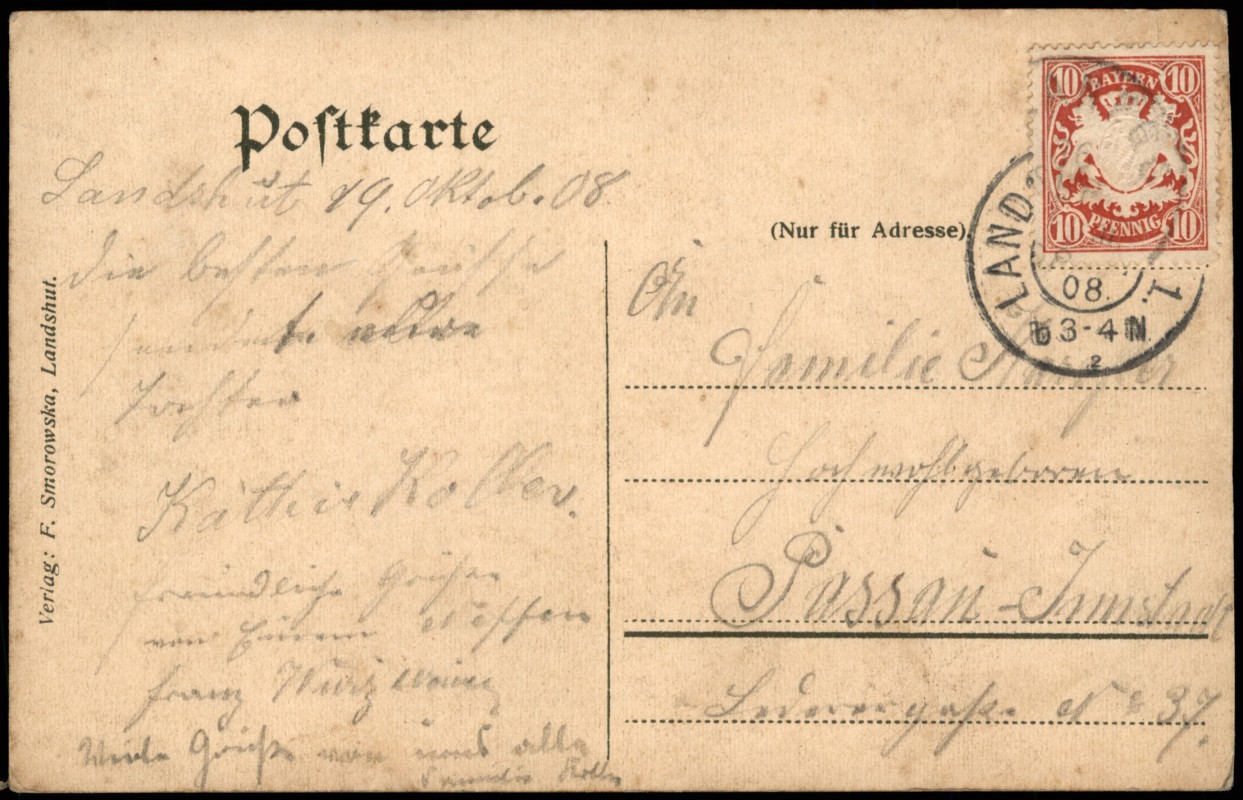 Postkarte
Landshut 19. Oktob. 08.
die besten Grüsse
sendet
Tochter
Käthie Koller.
freundliche Grüße
von Eurem Neffen
Franz
Viele Grüße von uns alle
Familie Koller
Verlag: F. Smorowska, Landshut.
(Nur für Adresse).
BAYERN
10 10
10 10
PFENNIG
LANDSHUT 1.
08.
3-4 N.
2
An
Familie
Hochwohlgeboren
Passau-Innstadt
Lederergaße No 37.